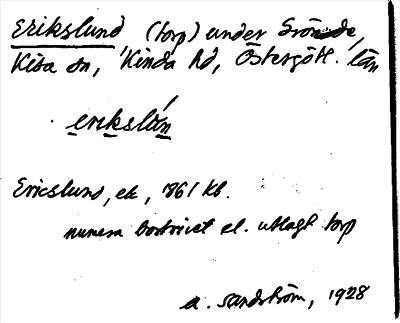 Erikslund (torp) under Grönede,
Kisa sn, Kinda hd, Östergötl. län
erikslún
Ericslund, ek, 1861 Kb.
numera bortrivet el. utlagt torp
A. Sandström, 1928